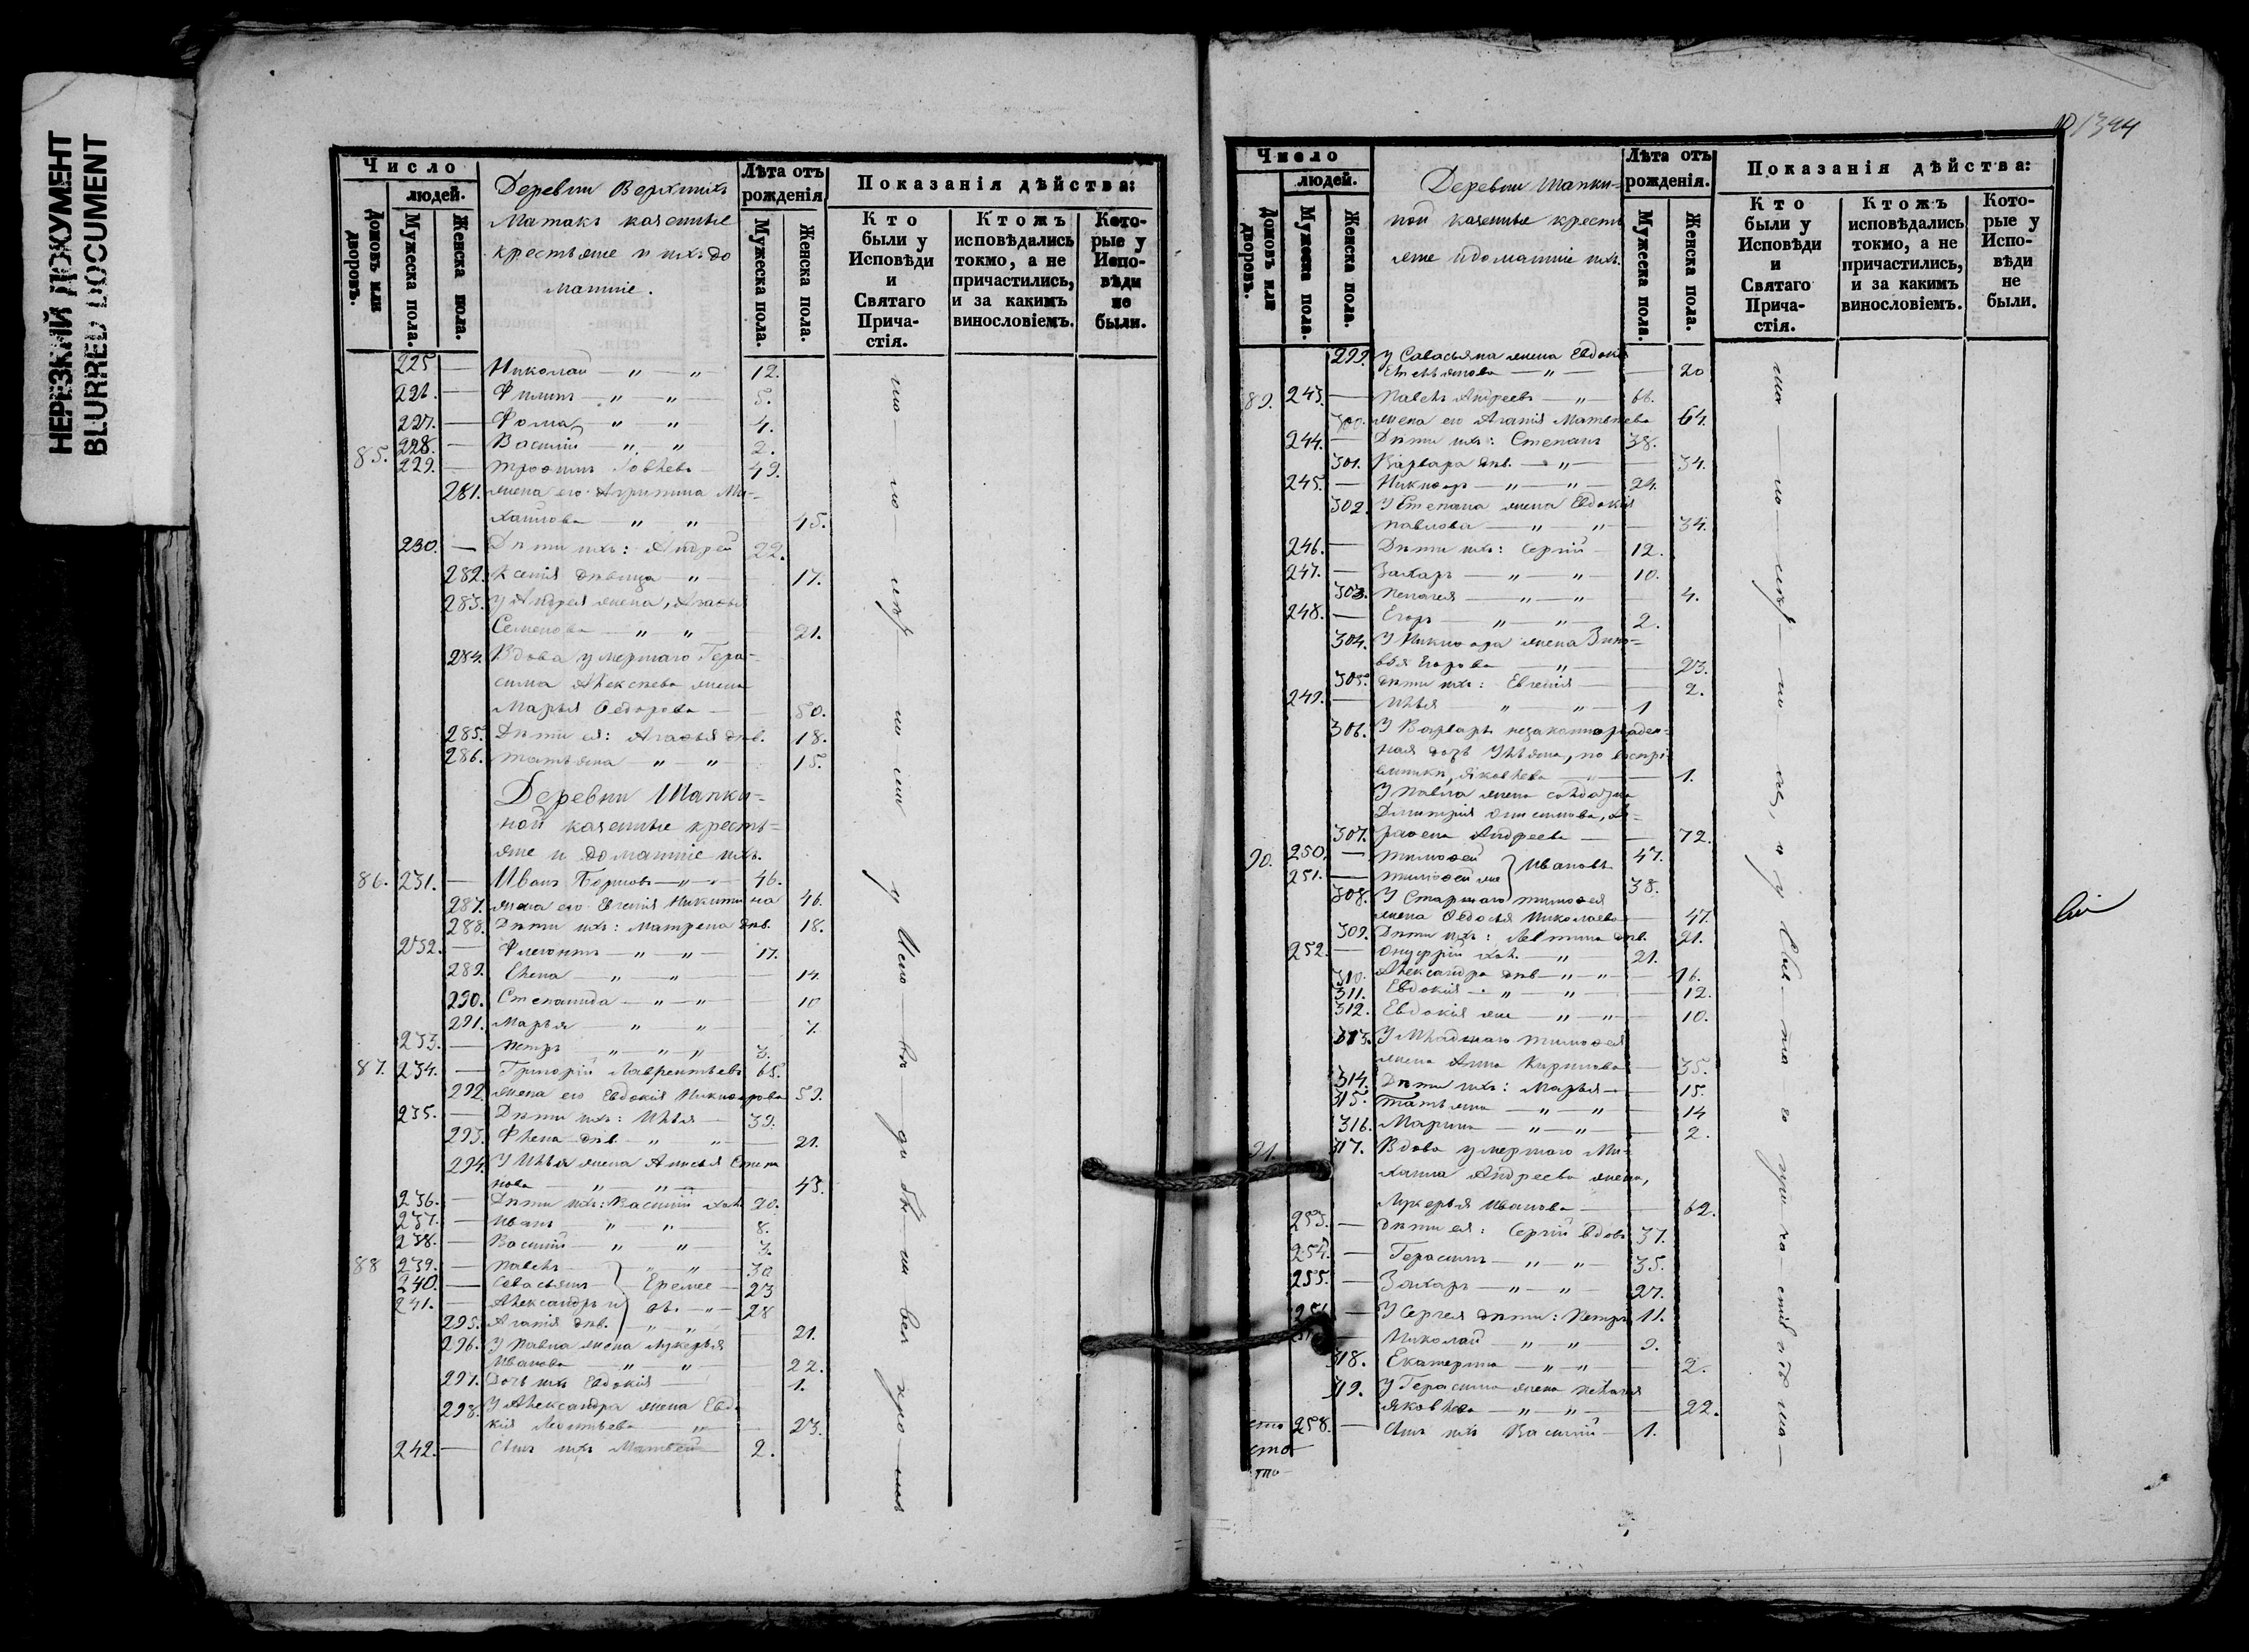 НЕРЕЗКИЙ ДОКУМЕНТ
BLURRED DOCUMENT
Число
людей.
Домовъ или дворовъ.
Мужеска пола.
Женска пола.
Деревни Верхнихъ
Матакъ казенные
крестьяне и ихъ до
машніе.
Лѣта отъ рожденія
Мужеска пола.
Женска пола.
Показанія дѣйства:
Кто были у Исповѣди и Святаго Причастія.
Ктожъ исповѣдались токмо, а не причастились, и за какимъ винословіемъ.
Которые у Исповѣди не были.
225 — Николай — " — " 12.
226. — Филипъ — " — " 5.
227. — Фома — " — " 4.
228. — Василій — " " 2.
85. 229. — Трофимъ 49.
281. жена его Агрипина Ми-
хайлова — " — " 45.
230. — Дѣти ихъ: Андрей 22.
282. Ксенія дѣвица — " — 17.
283. У Андрея жена, Агафья
Семенова — " — " 21.
284. Вдова умершаго Гера-
сима Алексѣева жена
Марья Федорова — 50.
285. Дѣти ея: Агафья дѣв. 18.
286. Татьяна — " — " 15.
Деревни Шапки-
ной казенные кресть-
яне и домашніе ихъ.
86. 231. — Иванъ — " — 46.
287. жена его Евгенія Никитина 46.
288. Дѣти ихъ: Матрена дѣв. 18.
232. — Флегонтъ — " — " — 17.
289. Елена — " — " — 14.
290. Степанида — " — " 10
291. Марья — " — " 7.
233. — Петръ — " — " — " 3.
87. 234. — Григорій Лаврентьевъ 65.
292. жена его Евдокія Никифорова 59.
235. — Дѣти ихъ: Илья — 39.
293. Фкена дѣв. — " " — 21.
294. У Ильи жена Анисья Степа
нова — " — " — 43.
236. — Дѣти ихъ: Василій хол. 20.
237. — Иванъ " — " — 8.
238. — Василій — " — " — 3.
88 239. — Павелъ — " — " — 30
240. — Савасьянъ — Еремее — 23
241. — Александръ и въ. — " — 28
295. Агапія дѣв. — " — " 21.
296. У Павла жена Лукерья
Иванова — " — " 22.
297. Дочь ихъ Евдокія — 1.
298. У Александра жена Евдо
кія Леонтьева — " 23.
242. — Сынъ ихъ Матвей 2.
1344
Число
людей.
Домовъ или дворовъ.
Мужеска пола.
Женска пола.
Деревни Шапки-
ной казенные кресть
яне и домашніе ихъ.
Лѣта отъ рожденія.
Мужеска пола.
Женска пола.
Показанія дѣйства:
Кто были у Исповѣди и Святаго Причастія.
Ктожъ исповѣдались токмо, а не причастились, и за какимъ винословіемъ.
Которые у Исповѣди не были.
299. У Савасьяна жена Евдокія
Емельянова — " — 20
89. 243. — Павелъ Андреевъ — " — 66.
300. жена его Агапія Матвѣева 64.
244. — Дѣти ихъ: Степанъ 38.
301. Варвара дѣв. — " — 34.
245. — Никифоръ — " — " — 24.
302. У Степана жена Евдокія
Павлова — " — " — 34.
246. — Дѣти ихъ: Сергій — 12.
247. — Захаръ — " — " 10.
303. Пелагея — " — " 4.
248. — Егоръ — " — " — 2.
304. У Никифора жена Зино-
вья Егорова — " — 23.
305. дѣти ихъ: Евгенія — 2.
249. — Илья " — " — 1
306. У Варвары незаконнорожден-
ная дочь Ульяна, по воспрі-
емнику, Яковлева — " 1.
У Павла жена солдатка
Дмитрія Онисимова,
307. Андреева — 72.
90. 250. — Тимофей Ивановъ 47.
251. — Тимофей же 38.
308. У Старшаго Тимофея
жена Федосья Николаева 47.
309. Дѣти ихъ: дѣв. 21.
252. — Онуфрій хол. — " — 21.
310. Александра дѣв — " — " 16.
311. Евдокія — " — " — 12.
312. Евдокія же — " — " 10.
313. У Младшаго Тимофея
жена Анна Кирилова — 35.
314. Дѣти ихъ: Марья — 15.
315. Татьяна — " — " 14
316. Марина — " — " 2.
91. 317. Вдова умершаго Ми-
хаила Андреева жена,
Лукерья Иванова — 62.
253. — Дѣти ея: Сергій вдовъ 37.
254. — Герасимъ — " — " 35.
255. — Захаръ — " — " 27.
— У Сергея дѣти: Петръ 11.
— Николай " — " — 9.
318. Екатерина — " — " — 2.
319. У Герасима жена Пелагея
Яковлева — " — " — 22.
258. — Сынъ ихъ Василій — 1.